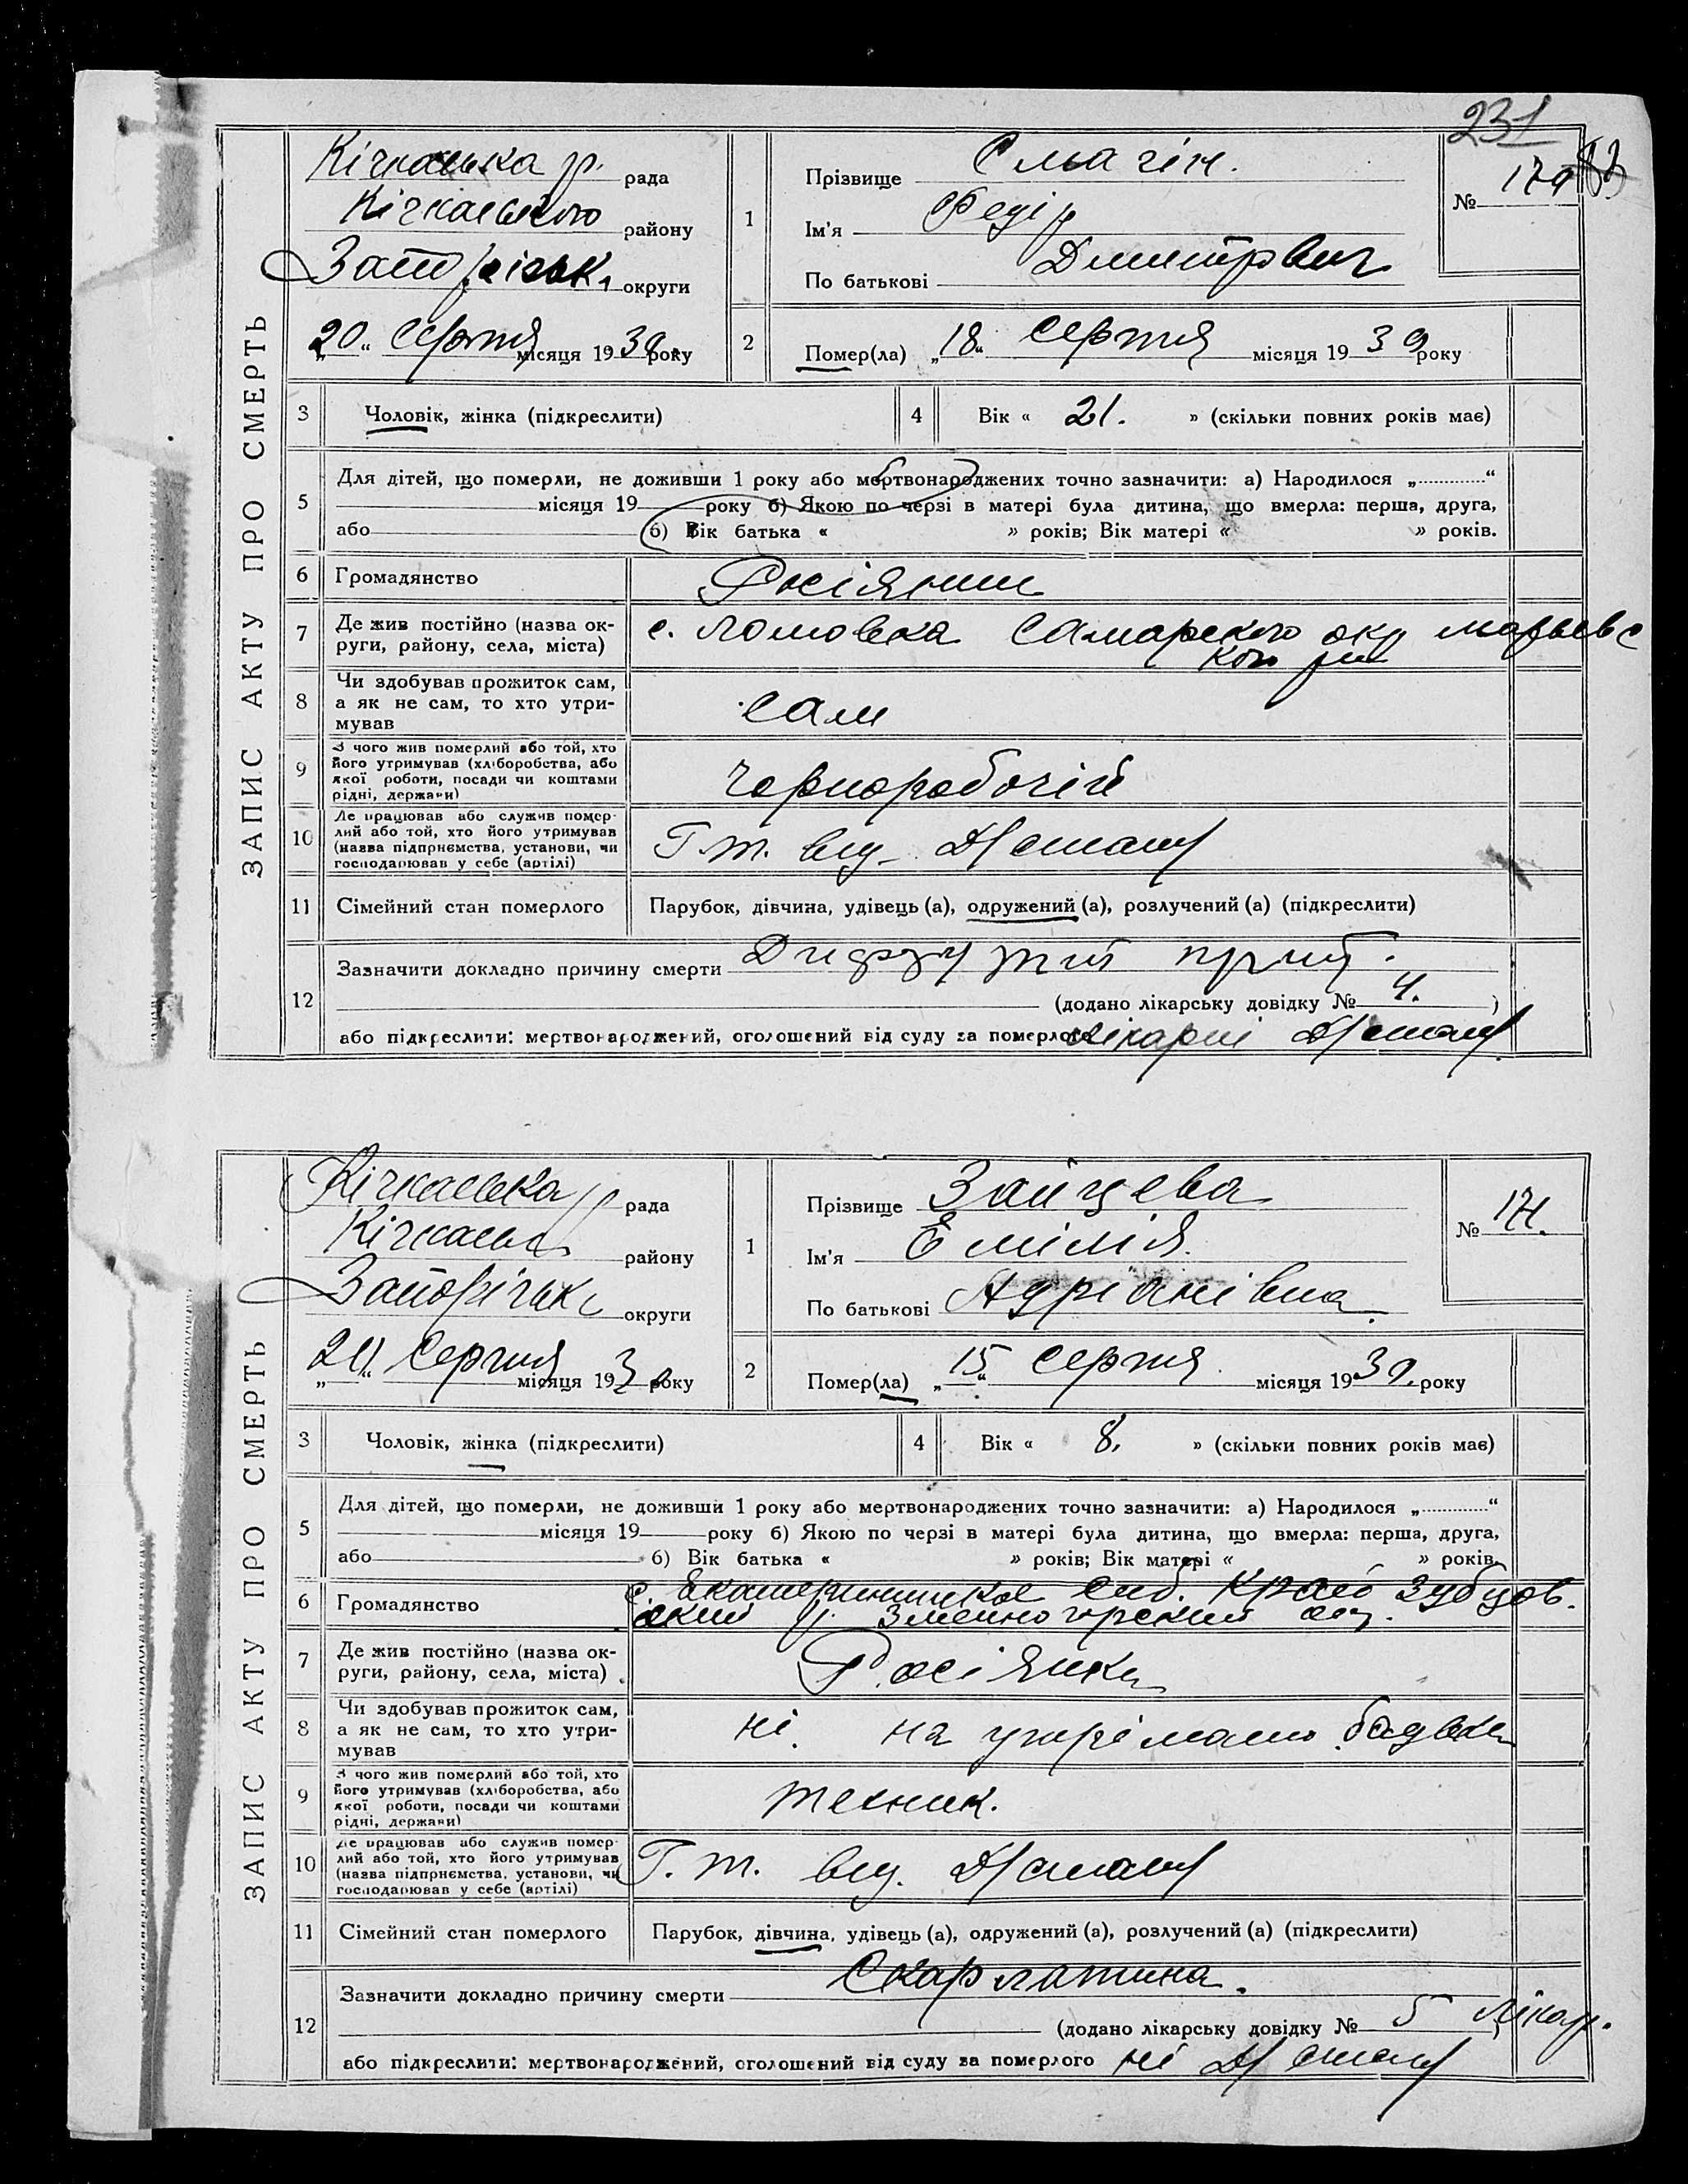 231
ЗАПИС АКТУ ПРО СМЕРТЬ
Кічкаська р. рада
Кічкаського району
Запорізьк. округи
„20“ серпня місяця 1930 року
1
Прізвище Сльагін.
Ім'я Федір
По батькові Дмитрович
№ 170
2
Помер(ла) „18“ серпня місяця 1930 року
3 Чоловік, жінка (підкреслити)
4 Вік « 21. » (скільки повних років має)
5 Для дітей, що померли, не доживши 1 року або мертвонароджених точно зазначити: а) Народилося „ “
місяця 19 року б) Якою по черзі в матері була дитина, що вмерла: перша, друга,
або б) Вік батька « » років; Вік матері « » років.
6 Громадянство Росіянин
7 Де жив постійно (назва ок-
руги, району, села, міста) с. Ломовка Самарского окр
кого
8 Чи здобував прожиток сам,
а як не сам, то хто утри-
мував сам
9 З чого жив померлий або той, хто
його утримував (хліборобства, або
якої роботи, посади чи коштами
рідні, держави) чорноробочій
10 Де працював або служив помер-
лий або той, хто його утримував
(назва підприємства, установи, чи
господарював у себе (артілі) Г.т. від.
11 Сімейний стан померлого Парубок, дівчина, удівець (а), одружений (а), розлучений (а) (підкреслити)
12 Зазначити докладно причину смерти
(додано лікарську довідку № 4. )
або підкреслити: мертвонароджений, оголошений від суду за померлого лікарні
ЗАПИС АКТУ ПРО СМЕРТЬ
Кічкаська р рада
Кічкаськ району
Запорізьк округи
„20“ серпня місяця 1930 року
1
Прізвище Зайцева
Ім'я Емілія.
По батькові Адріанівна
№ 171.
2
Помер(ла) „15“ серпня місяця 1930. року
3 Чоловік, жінка (підкреслити)
4 Вік « 8. » (скільки повних років має)
5 Для дітей, що померли, не доживши 1 року або мертвонароджених точно зазначити: а) Народилося „ “
місяця 19 року б) Якою по черзі в матері була дитина, що вмерла: перша, друга,
або б) Вік батька « » років; Вік матері « » років.
6 Громадянство с. Екатерининское Сиб. Край Зубцов.
ский р. Змеиногорский окр.
7 Де жив постійно (назва ок-
руги, району, села, міста) Росіянка
8 Чи здобував прожиток сам,
а як не сам, то хто утри-
мував ні. на утрімані батька
9 З чого жив померлий або той, хто
його утримував (хліборобства, або
якої роботи, посади чи коштами
рідні, держави) техник.
10 Де працював або служив помер-
лий або той, хто його утримував
(назва підприємства, установи, чи
господарював у себе (артілі) Г.т. від.
11 Сімейний стан померлого Парубок, дівчина, удівець (а), одружений (а), розлучений (а) (підкреслити)
12 Зазначити докладно причину смерти Скарлатина.
(додано лікарську довідку № 5 Лікар.
або підкреслити: мертвонароджений, оголошений від суду за померлого ні